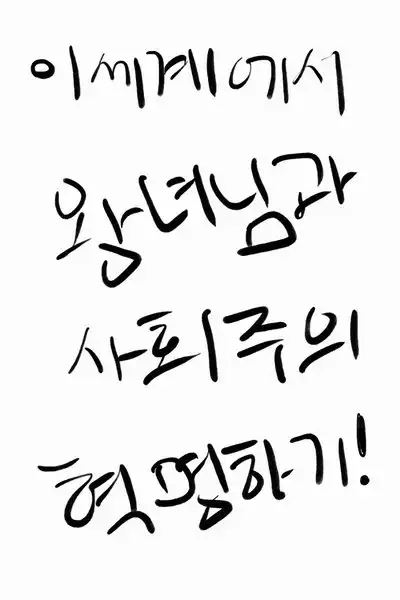 이세계에서
왕녀님과
사회주의
혁명하기!